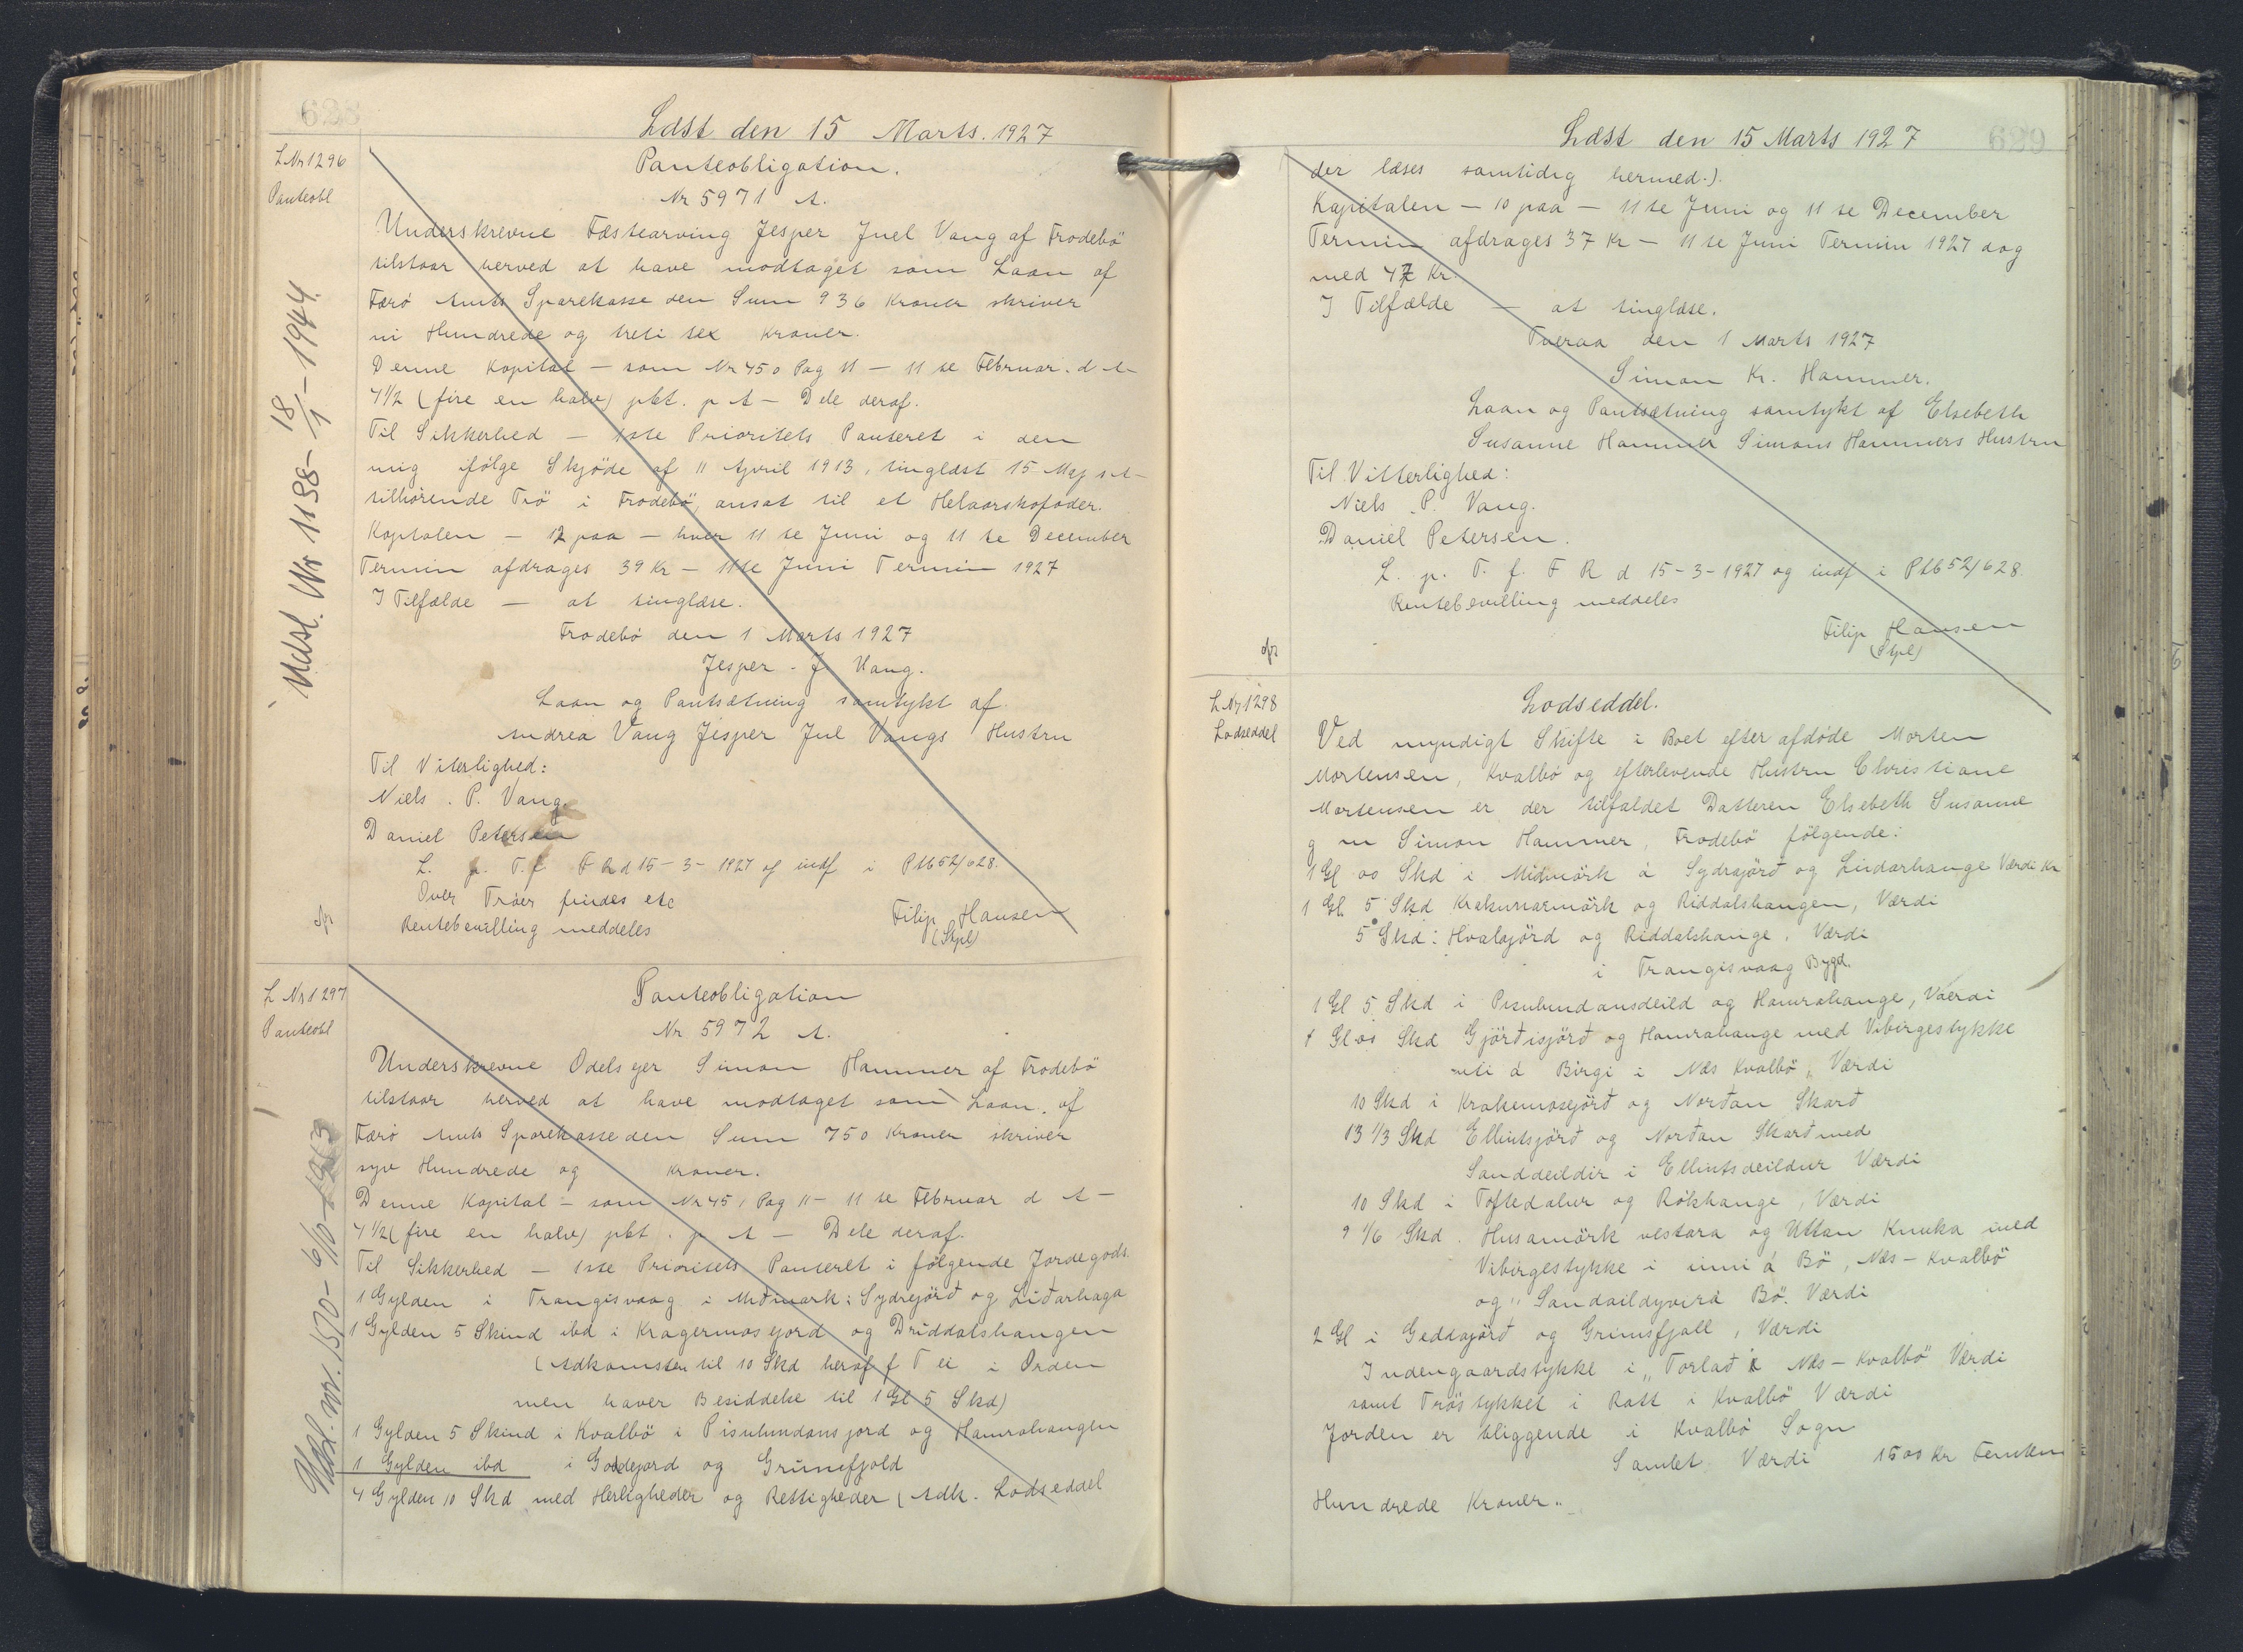 628
Læst den 15 Marts. 1927
L Nr 1296
Panteobl
Panteobligation.
Nr 5971 A.
Underskrevne Fæstearving Jesper Juel Vang af Frodebö
tilstaar herved at have modtaget som Laan af
Færö Amts Sparekasse den Sum 936 Kroner skriver
ni Hundrede og treti sex Kroner.
Denne Kapital - som Nr 450 Pag 11 - 11 te Februar. d A-
4 1/2 (fire en halv) pkt. p A - Dele deraf.
Til Sikkerhed - 1ste Prioritets Panteret i den
mig ifölge Skjöde af 11 April 1913, tinglæst 15 Maj s A-
tilhörende Trö i Frodebö, ansat til et Helaarskofoder.
Kaptalen - 12 paa - hver 11 te Juni og 11 te December
Termin afdrages 39 Kr - 11te Juni Termin 1927
I Tilfælde - at tinglæse.
Frodebö den 1 Marts 1927
Jesper - J. Vang.
Laan og Pantsætning samtykt af
Andrea Vang Jesper Jul Vangs Hustru
Til Viterlighed:
Niels. P. Vang.
Daniel Petersen
L. p. T. f F R d 15-3-1927 og indf i Ptb 52/628.
Over Tröer findes etc
Rentebevilling meddeles
Filip Hansen
(Stpl)
Udsl. Nr 1138- 18/1-1944.
L Nr 1297
Panteobl
Panteobligation
Nr 5972 A.
Underskrevne Odelsejer Simon Hammer af Frodebö
tilstaar herved at have modtaget som Laan. af
Færö Amts Sparekasse den Sum 750 Kroner skriver
syv Hundrede og Kroner.
Denne Kapital - som Nr 451 Pag 11- 11 te Februar d A-
4 1/2 (fire en halv) pkt. p A - Dele deraf.
Til Sikkerhed - 1ste Prioritets Panteret i fölgende Jordegods.
1 Gylden i Trangisvaag i Miðmark: Sydrejörð og Liðarhaga
1 Gylden 5 Skind ibd i Kragermosejord og Driddalshangen
(Adkomsten til 10 Skd heraf f T ei i Orden
men haver Besiddelse til 1 Gl 5 Skd)
1 Gylden 5 Skind i Kvalbö i Pisulundansjord og Hamrahangen
1 Gylden ibd i Goddejord og Grimsfjold
4 Gylden 10 Skd med Herligheder og Rettigheder (Adk. Lodseddel
Udsl. nr. 1570- 6/10-1963
629
Læst den 15 Marts 1927
der læses samtidig hermed.).
Kapitalen - 10 paa - 11 te Juni og 11 te December
Termin afdrages 37 Kr - 11 te Juni Termin 1927 dog
med 47 Kr
I Tilfælde - at tinglæse.
Tveraa den 1 Marts 1927
Simon Kr. Hammer.
Laan og Pantsætning samtykt af Elsebeth
Susanne Hammer Simons Hammers Hustru
Til Vitterlighed:
Niels P. Vang.
Daniel Petersen.
L. p. T. f. F R d 15-3-1927 og indf i Ptb 52/628.
Rentebevilling meddeles
Filip Hansen
(Stpl)
L Nr 1298
Lodseddel
Lodseddel.
Ved myndigt Skifte i Boet efter afdöde Morten
Mortensen, Kvalbö og efterlevende Hustru Christiane
Mortensen er der tilfaldet Datteren Elsebeth Susanne
g m Simon Hammer, Frodebö fölgende:
1 Gl 00 Skd i Midmörk á Sydrajörð og Lidarhange Værdi Kr
1 Gl 5 Skd Krakumarmörk og Riddalshangen, Værdi
5 Skd: Hvalajörd og Riddalshange. Værdi
i Trangisvaag Bygd.
1 Gl 5 Skd i Pisulundansdeild og Hamrahange, Værdi
1 Gl 00 Skd Gjörðisjörð og Hamrahange med Vibirgestykke
uti á Birgi i Næs Kvalbö, Værdi
10 Skd i Krakemosejörð og Norðan Skarð
13 1/3 Skd Ellintsjörð og Norðan Skarð med
Sanddeildir i Ellintsdeildur Værdi
10 Skd i Toftedalur og Rökhange, Værdi
9 1/6 Skd. Husamörk vestara og Uttan Knuka med
Vibirgestykke i inni á Bö, Næs - Kvalbö
og "Sandaildyvirá Bö. Værdi
2 Gl i Geddajörð og Grimsfjall, Værdi
Indengaardstykke i "Torlað i Næs - Kvalbö" Værdi
samt Tröstykket i Ratt i Kvalbö Værdi
Jorden er bliggende i Kvalbö Sogn
Samlet Værdi 1500 Kr Femten
Hundrede Kroner..